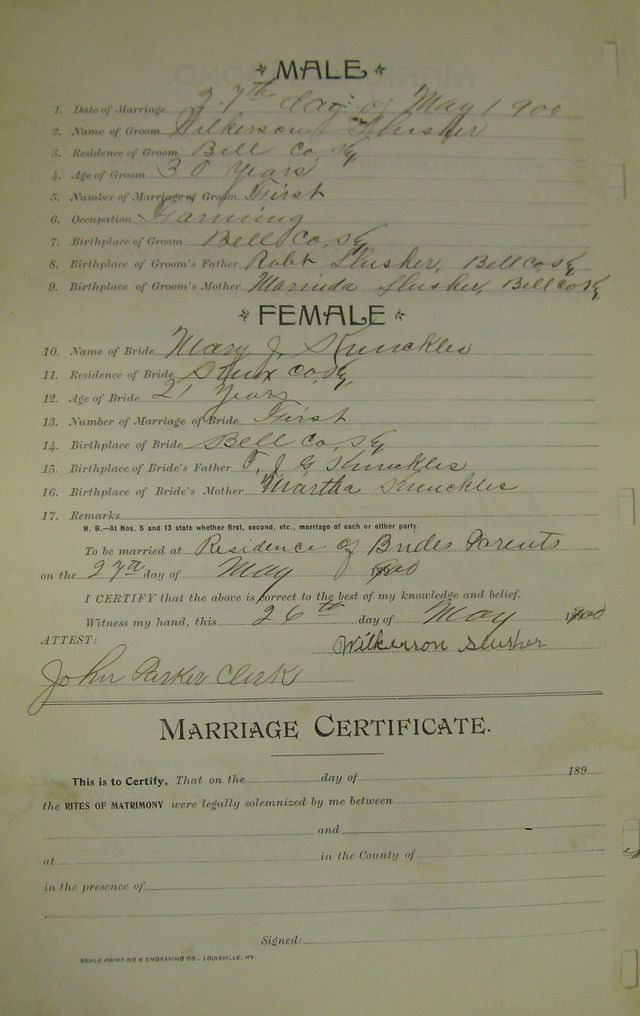 MALE
1. Date of Marriage 27th day of May 1900
2. Name of Groom Wilkerson Slusher
3. Residence of Groom Bell Co, Ky
4. Age of Groom 30 Years
5. Number of Marriage of Groom First
6. Occupation Farming
7. Birthplace of Groom Bell Co, Ky
8. Birthplace of Groom's Father Robt Slusher, Bell Co, Ky
9. Birthplace of Groom's Mother Marinda Slusher, Bell Co Ky
FEMALE
10. Name of Bride Mary J. Knuckles
11. Residence of Bride Co, Ky
12. Age of Bride 21 Years
13. Number of Marriage of Bride First
14. Birthplace of Bride Bell Co, Ky
15. Birthplace of Bride's Father J G Knuckles
16. Birthplace of Bride's Mother Martha Knuckles
17. Remarks
N. B.—At Nos. 5 and 13 state whether first, second, etc., marriage of each or either party.
To be married at Residence of Brides Parents
on the 27th day of May 1900
I CERTIFY that the above is correct to the best of my knowledge and belief.
Witness my hand, this 26th day of May 1900
ATTEST: Wilkerson Slusher
John Parker Clerk
MARRIAGE CERTIFICATE.
This is to Certify, That on the day of 189
the RITES OF MATRIMONY were legally solemnized by me between
and
at in the County of
in the presence of
Signed:
PRINTING & ENGRAVING CO., LOUISVILLE, KY.